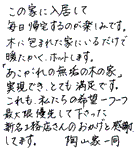 この家に入居して
毎日帰宅するのが楽しみです。
木に包まれた家にいるだけで
暖たかくて、ホットします。
「あこがれの無垢の木の家」
実現でき、とても満足です。
これも、私たちの希望一つ一つ
最大限優先して下さった
新名工務店さんのおかげと感謝
してます。 陶山家一同